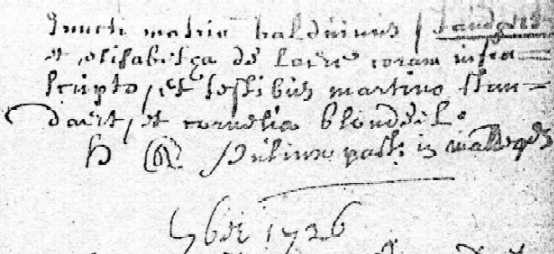 Juncti matrio balduinus
et elisabetga de Loere coram infra=
scripto, et testibus martino stan=
daert, et cornelia blondeel.
past: in
7ber 1726